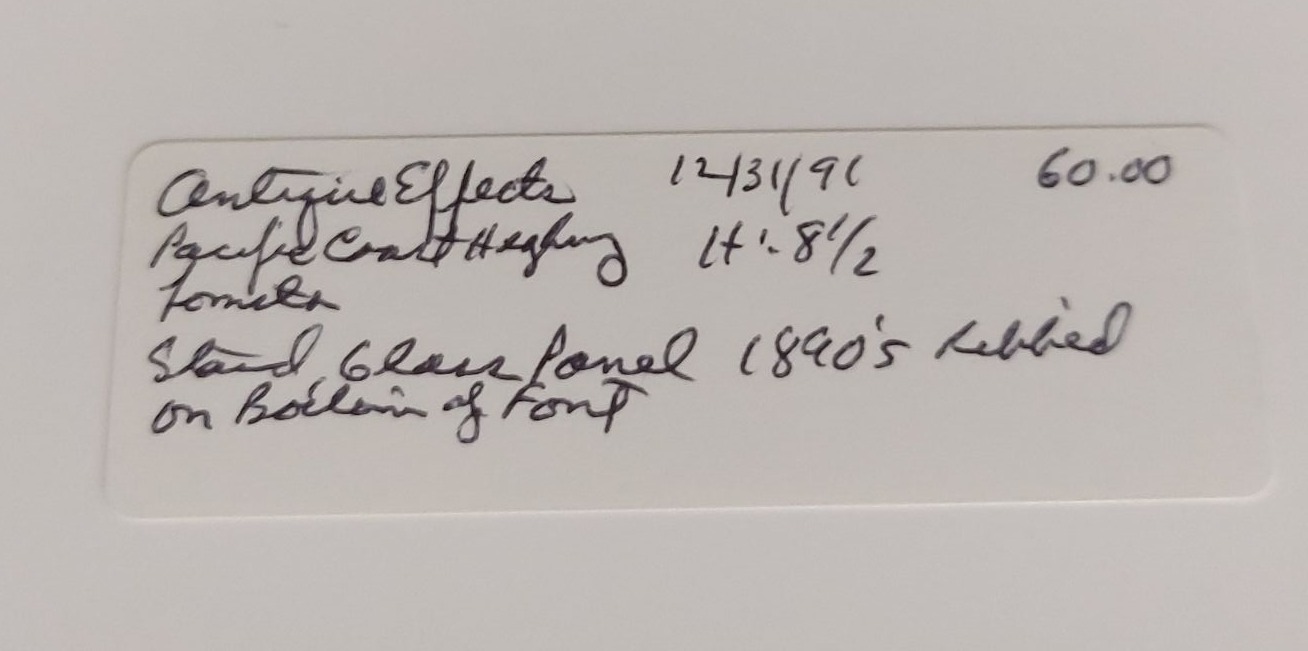 Antique Effects 12/31/91 60.00
Pacific Coast Highway H:-8 1/2
Lomita
Staind Glass Panel 1890's Ribbied
on Bottom of Font